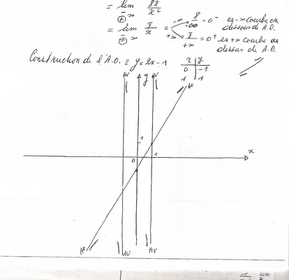 = lim 7x/x²
±∞
= lim 7/x = -∞ 7/-∞ = 0⁻ en -∞ courbe en dessous de A.O.
±∞ +∞ 7/+∞ = 0⁺ en +∞ courbe au dessus de A.O.
Construction de l'A.O. = y = 2x - 1
x y
0 -1
1 1
AV y AV
1
0 1 x
AV AV